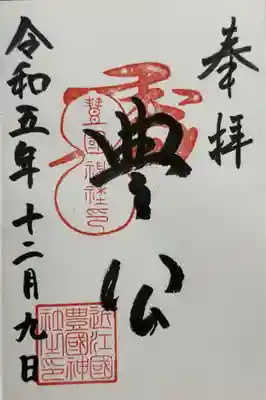 奉拝
豊公
令和五年十二月九日
豊國神社印
近江國
豊國神
社之印